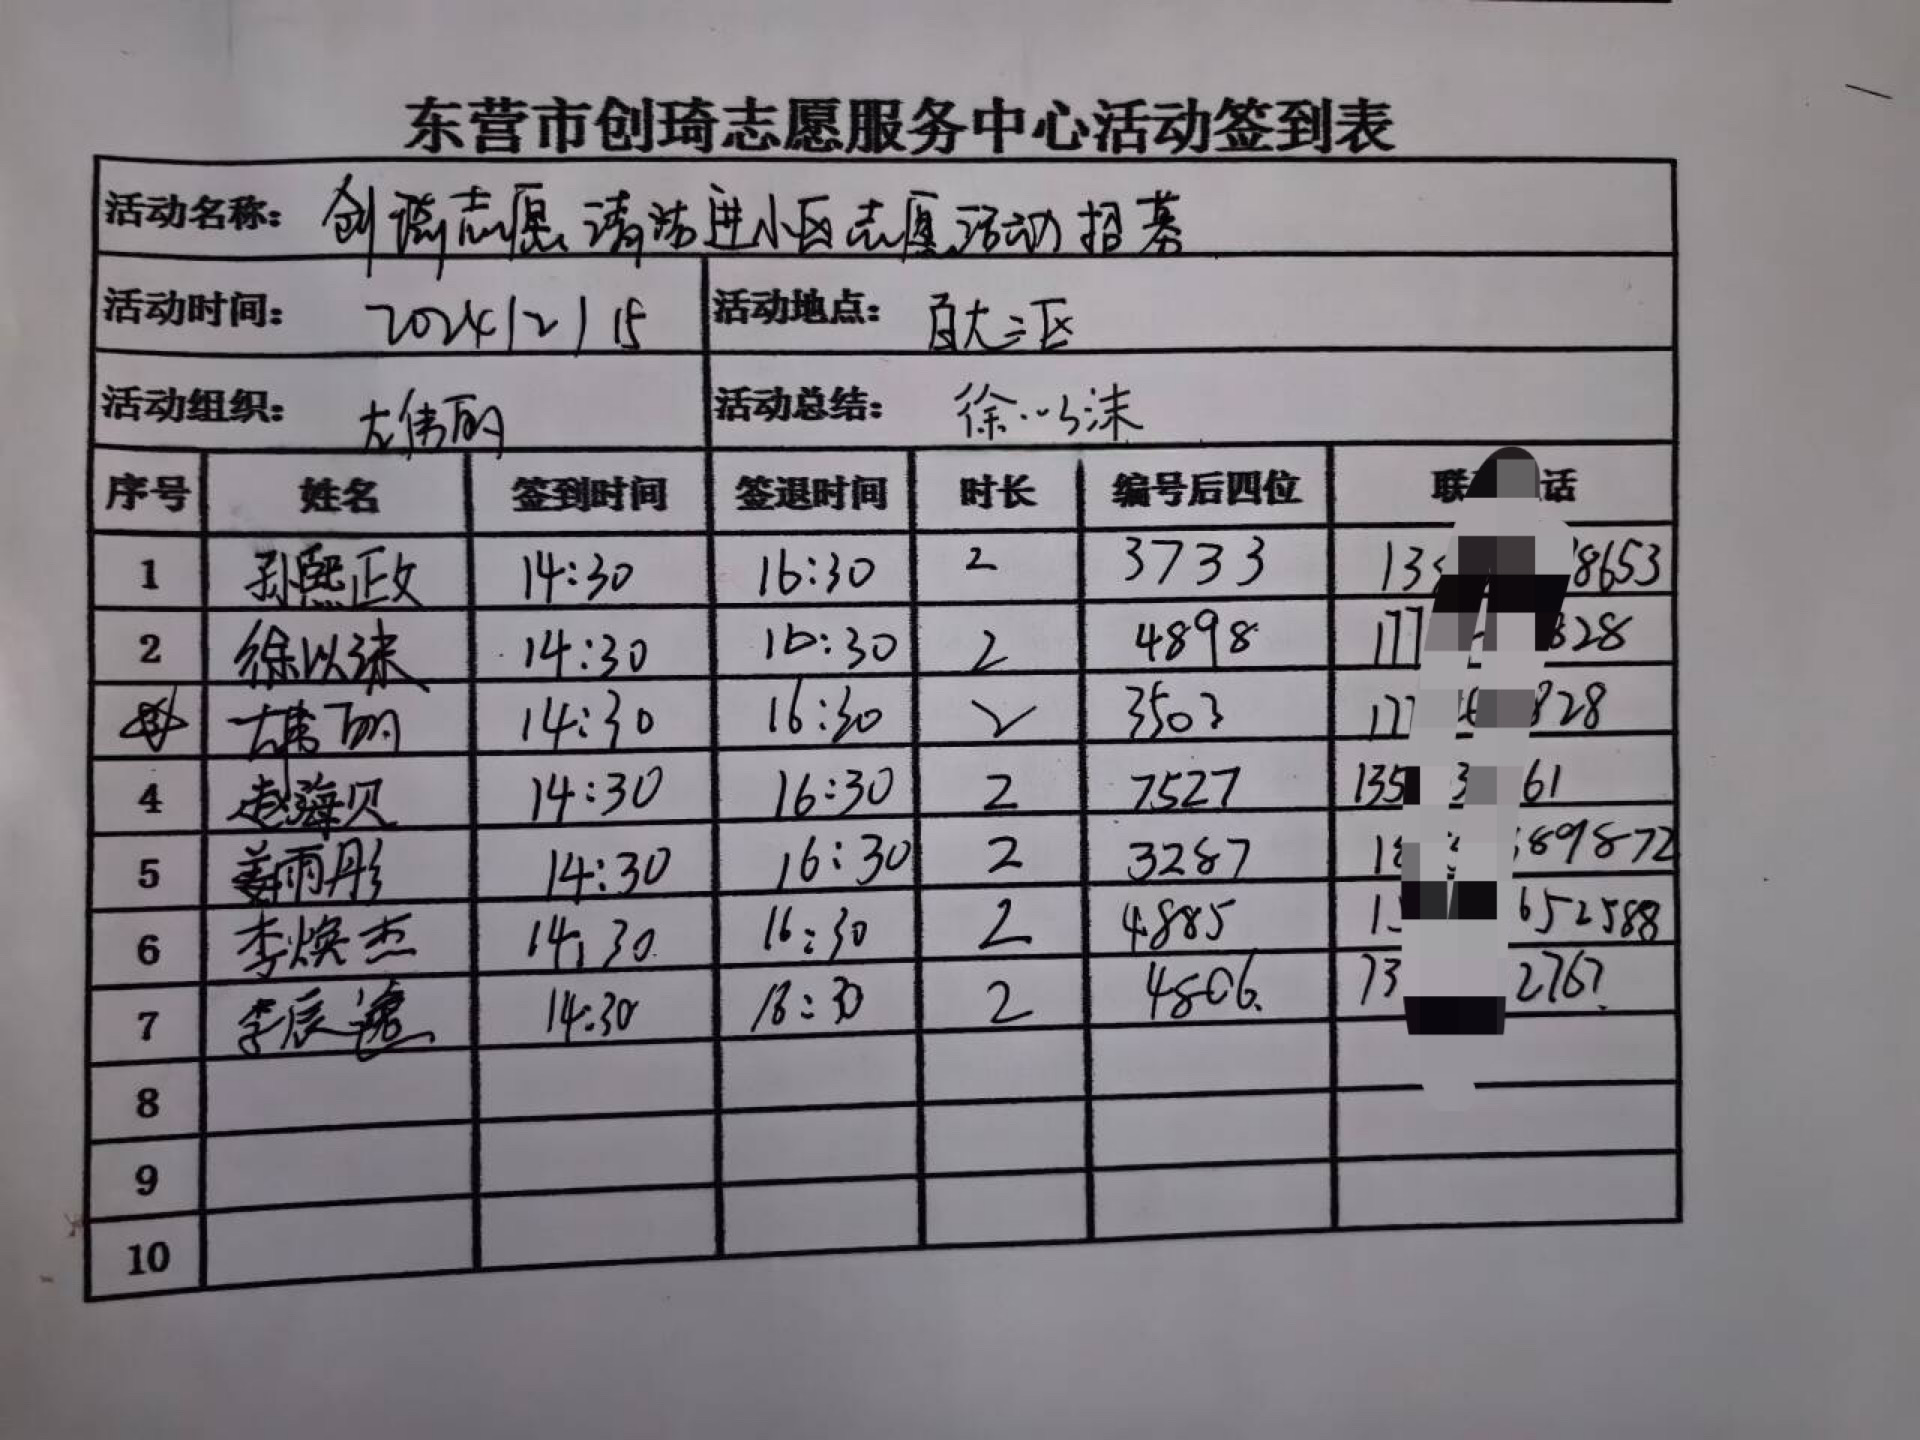 东营市创琦志愿服务中心活动签到表
活动名称: 创琦志愿 清洁进小区志愿活动招募
活动时间: 2024/12/15 活动地点: 百大二区
活动组织: 左伟丽 活动总结: 徐以沫
序号 姓名 签到时间 签退时间 时长 编号后四位 联 话
1 孙熙政 14:30 16:30 2 3733 13 8653
2 徐以沫 14:30 16:30 2 4898 177 828
左伟丽 14:30 16:30 2 3503 177 828
4 赵海贝 14:30 16:30 2 7527 135 3 61
5 姜雨彤 14:30 16:30 2 3287 18 89872
6 李焕杰 14:30 16:30 2 4885 15 652588
7 李辰 14:30 18:30 2 4806 73 2767
8
9
10